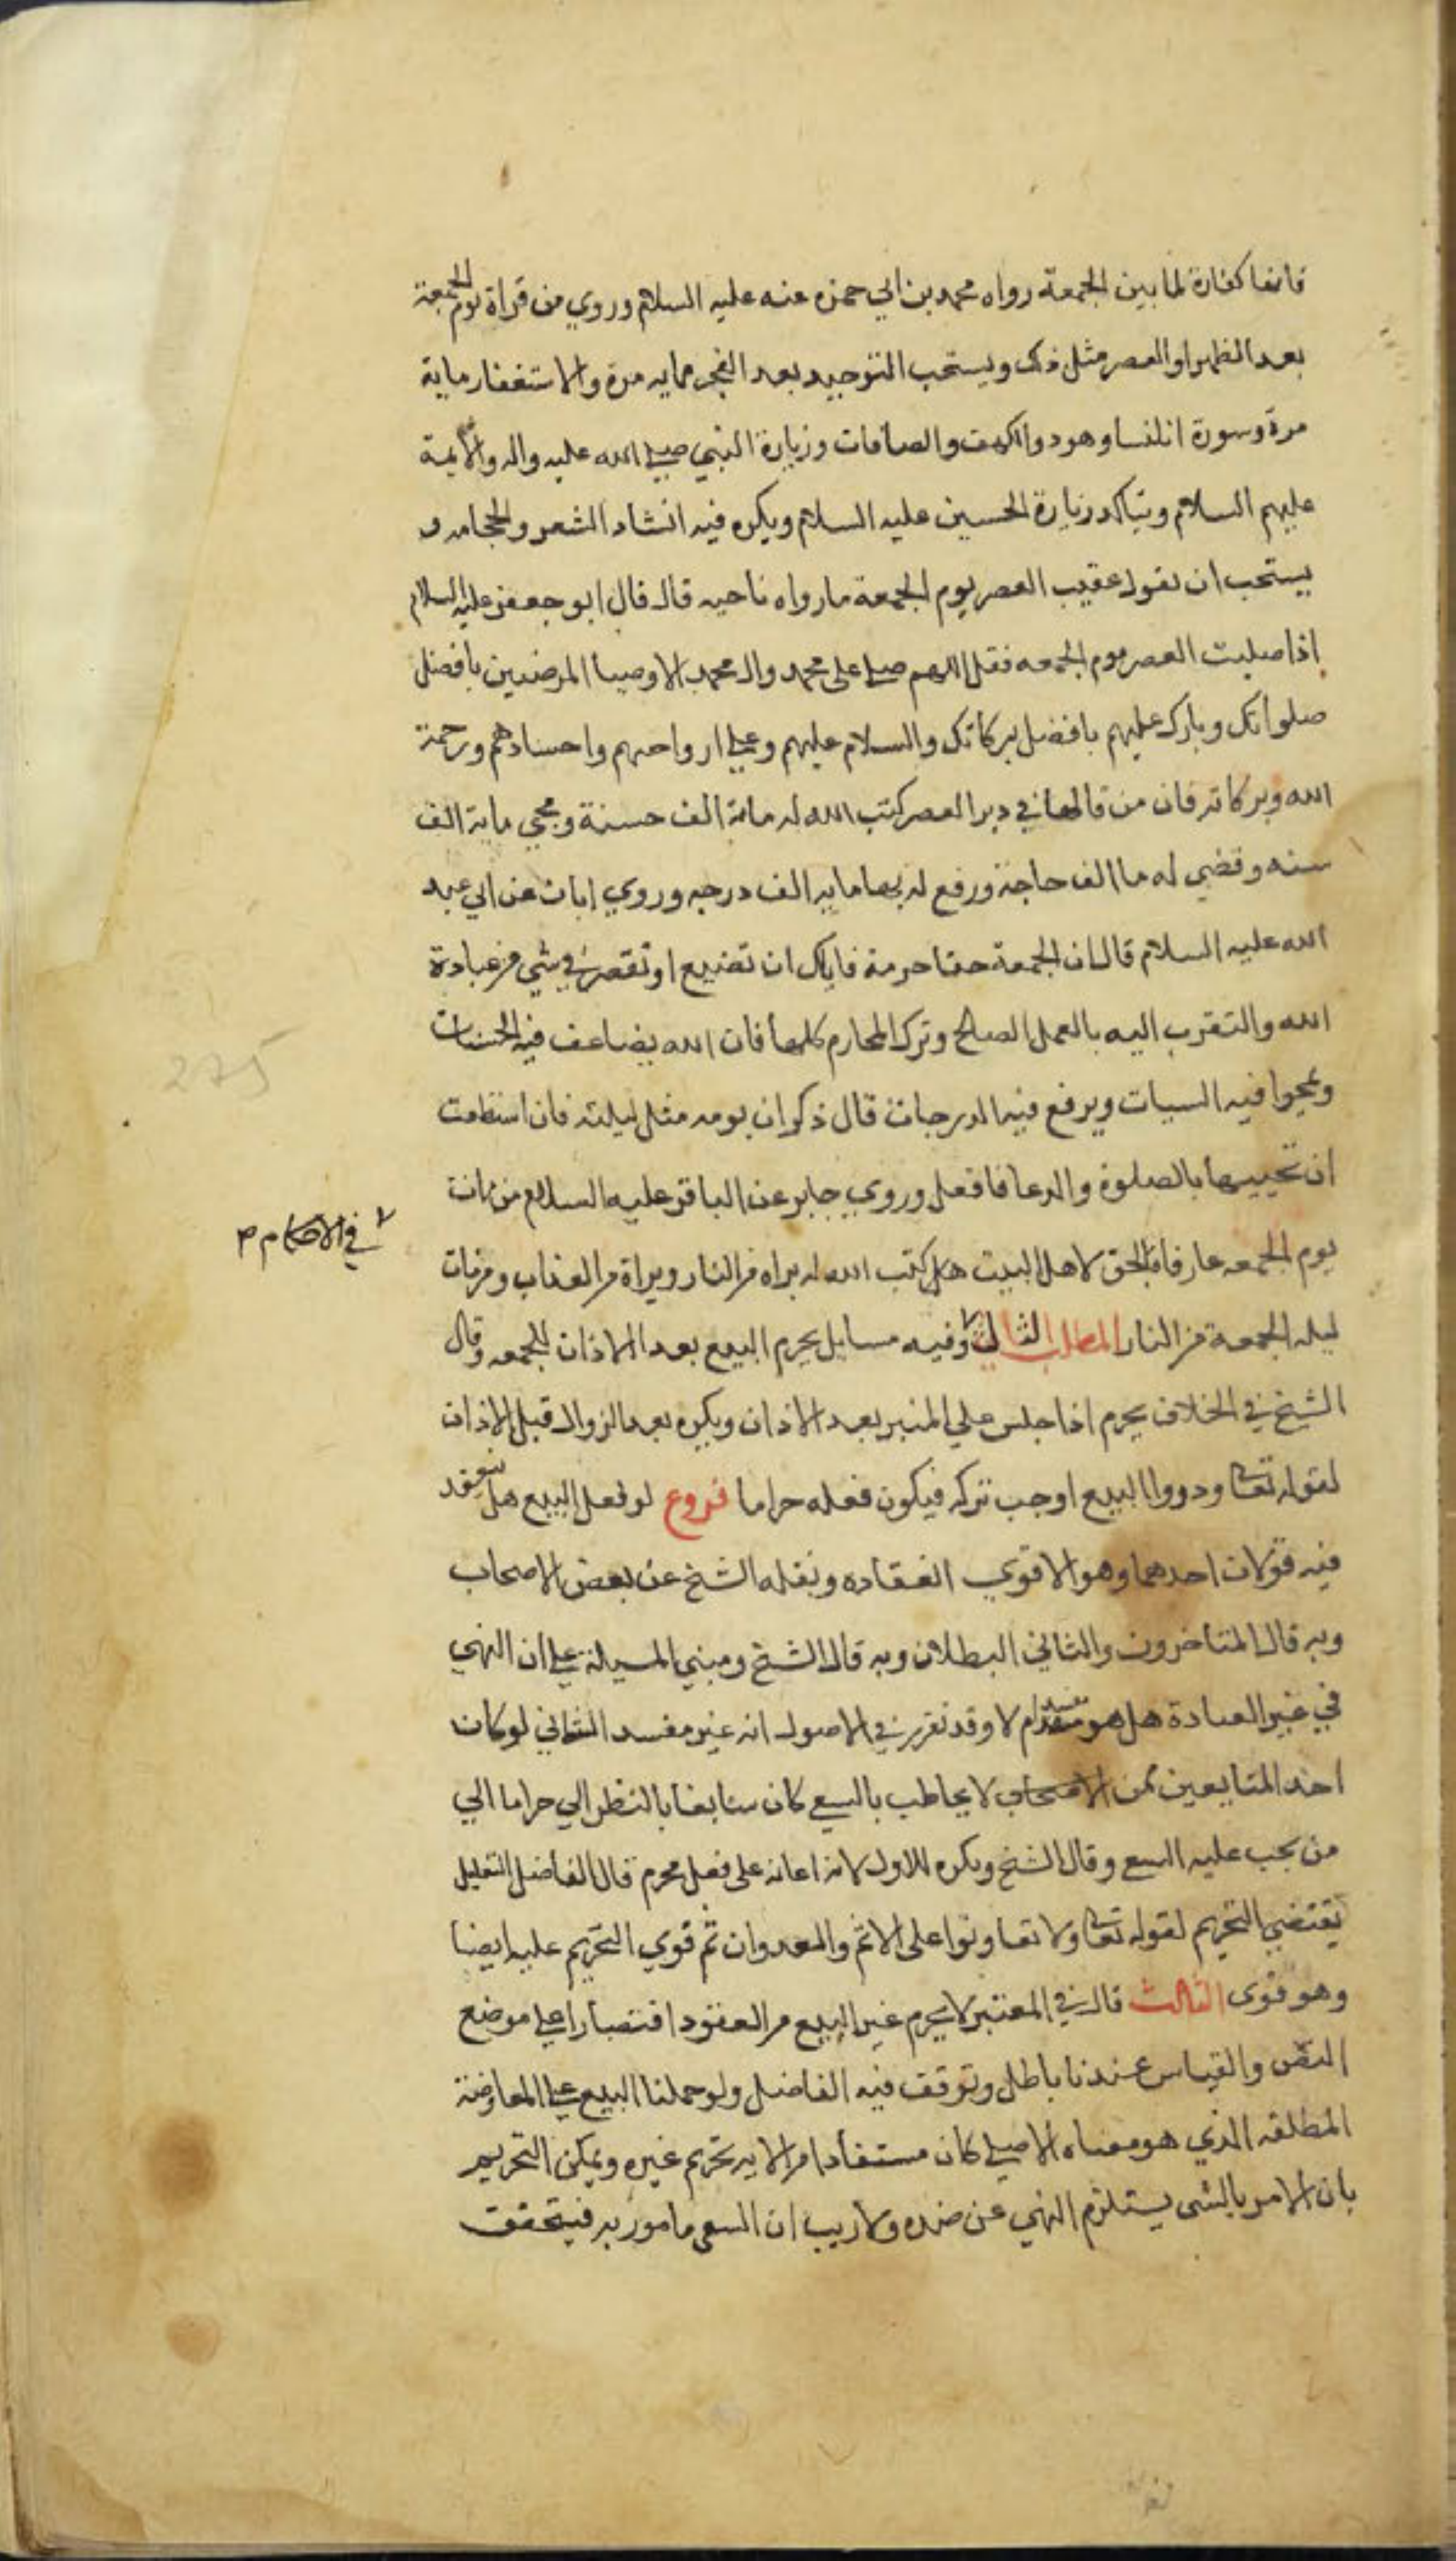 فانها كفارة لما بين الجمعة رواه محمد بن ابي حمزه عنه عليه السلام وروي من قراة يوم الجمعة
بعد الظهر او العصر مثل ذلك ويستحب التوحيد بعد الفجر مايه مرة والاستغفار ماية
مرة وسورة النسا وهود والكهف والصافات وزيارة النبي صلى الله عليه واله والايمة
عليهم السلام ويتاكد زيارة الحسين عليه السلام ويكره فيه انشاد الشعر والحجامه و
يستحب ان يقول عقيب العصر يوم الجمعة ما رواه ناحيه قال قال ابو جعفر عليه السلام
اذا صليت العصر يوم الجمعه فقل اللهم صل على محمد وال محمد الاوصيا المرضيين بافضل
صلواتك وبارك عليهم بافضل بركاتك والسلام عليهم وعلى ارواحهم واجسادهم ورحمة
الله وبركاته فان من قالها في دبر العصر كتب الله له ماية الف حسنة ومحي ماية الف
سيئه وقضي له ماا الف حاجة ورفع له بها مايه الف درجه وروي ابان عن ابي عبد
الله عليه السلام قال ان للجمعة حقا حرمة فاياك ان تضيع او تقصر في شي من عبادة
الله والتقرب اليه بالعمل الصالح وترك المحارم كلها فان الله يضاعف فيه الحسنات
ويمحوا فيه السيات ويرفع فيه الدرجات قال ذكر ان يومه مثل ليلته فان استطعت
ان تحييها بالصلوة والدعا فافعل وروي جابر عن الباقر عليه السلام من مات
يوم الجمعه عارفا بالحق لاهل البيت هكل كتب الله له براه من النار وبراة من العذاب ومن مات
في الاحكام م
ليله الجمعة من النار المطلب الثالث وفيه مسايل يحرم البيع بعد الاذان للجمعه وقال
الشيخ في الخلاف يحرم اذا جلس علي المنبر بعد الاذان ويكره بعد الزوال قبل الاذان
لقوله تعالى وذروا البيع اوجب تركه فيكون فعله حراما فروع لو فعل البيع هل ينعقد
فيه قولان احدهما وهو الاقوي انعقاده ونقله الشيخ عن بعض الاصحاب
وبه قال المتاخرون والثاني البطلان وبه قال الشيخ ومبني المسيلة على ان النهي
في غير العبادة هل هو مفسد ام لا وقد تقرر في الاصول انه غير مفسد الثاني لو كان
احد المتبايعين ممن لا يخاطب بالسعي كان سايغا بالنظر الي حراما الي
من يجب عليه السعي وقال الشيخ ويكره للاول لانه اعانه على فعل محرم قال الفاضل التعليل
يقتضي التحريم لقوله تعالى ولا تعاونوا على الاثم والعدوان ثم قوي التحريم عليه ايضا
وهو قوى الثالث قال في المعتبر لا يحرم غير البيع من العقود اقتصارا على موضع
النص والقياس عندنا باطل وتوقف فيه الفاضل ولو حملنا البيع على المعاوضة
المطلقه الذي هو معناه الاصلي كان مستفادا من الايه تحريم غيره ويمكن التحريم
بان الامر بالشي يستلزم النهي عن ضده ولا ريب ان السعي مامور به فيتحقق
275